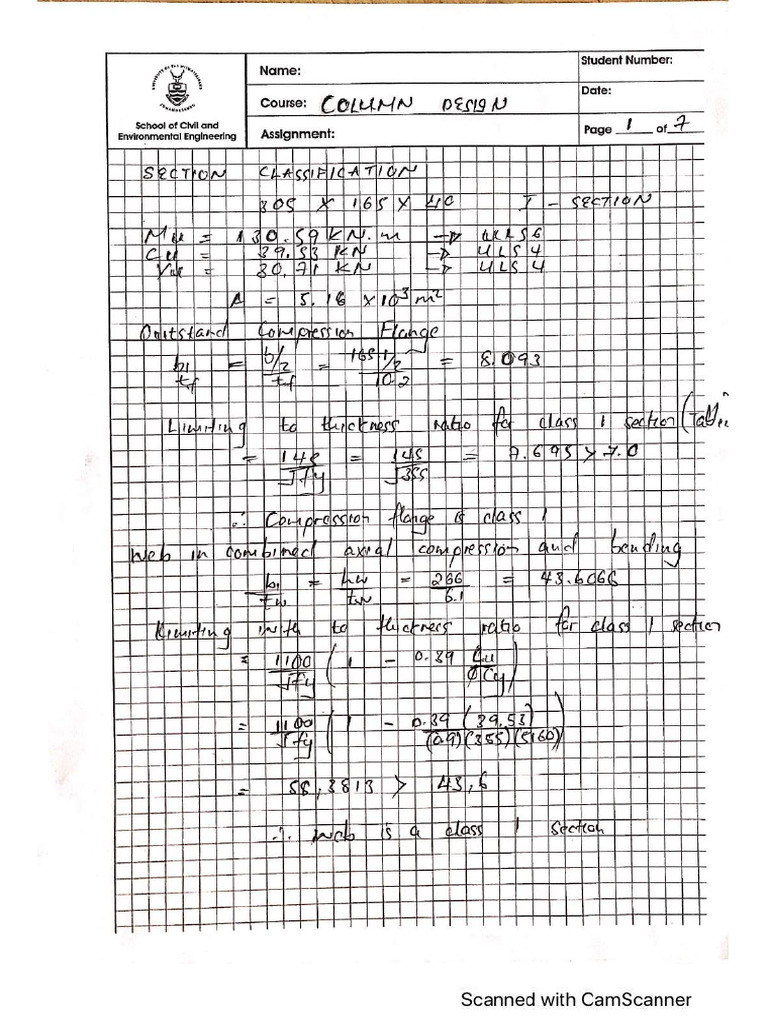 Name:
Student Number:
Course: COLUMN DESIGN
Date:
School of Civil and
Environmental Engineering
Assignment:
Page 1 of 7
SECTION CLASSIFICATION
305 x 165 x 40 I - SECTION
Mu = 130.59 KN.m → ULS 6
Cu = 39.53 KN → ULS 4
Vu = 30.71 KN → ULS 4
A = 5.16 x 10³ m²
Outstand Compression Flange
b1/tf = b/2/tf = 165.1/2/10.2 = 8.093
Limiting to thickness ratio for class 1 section
= 145/√fy = 145/√355 = 7.695 > 7.0
∴ Compression flange is class 1
Web in combined axial compression and bending
b1/tw = hw/tw = 266/6.1 = 43.6066
Limiting with to thickness ratio for class 1 section
= 1100/√fy (1 - 0.39 Cu/ØCy)
= 1100/√fy (1 - 0.39 (39.53)/(0.9)(355)(5160))
= 58,3813 > 43,6
∴ Web is a class 1 section
Scanned with CamScanner